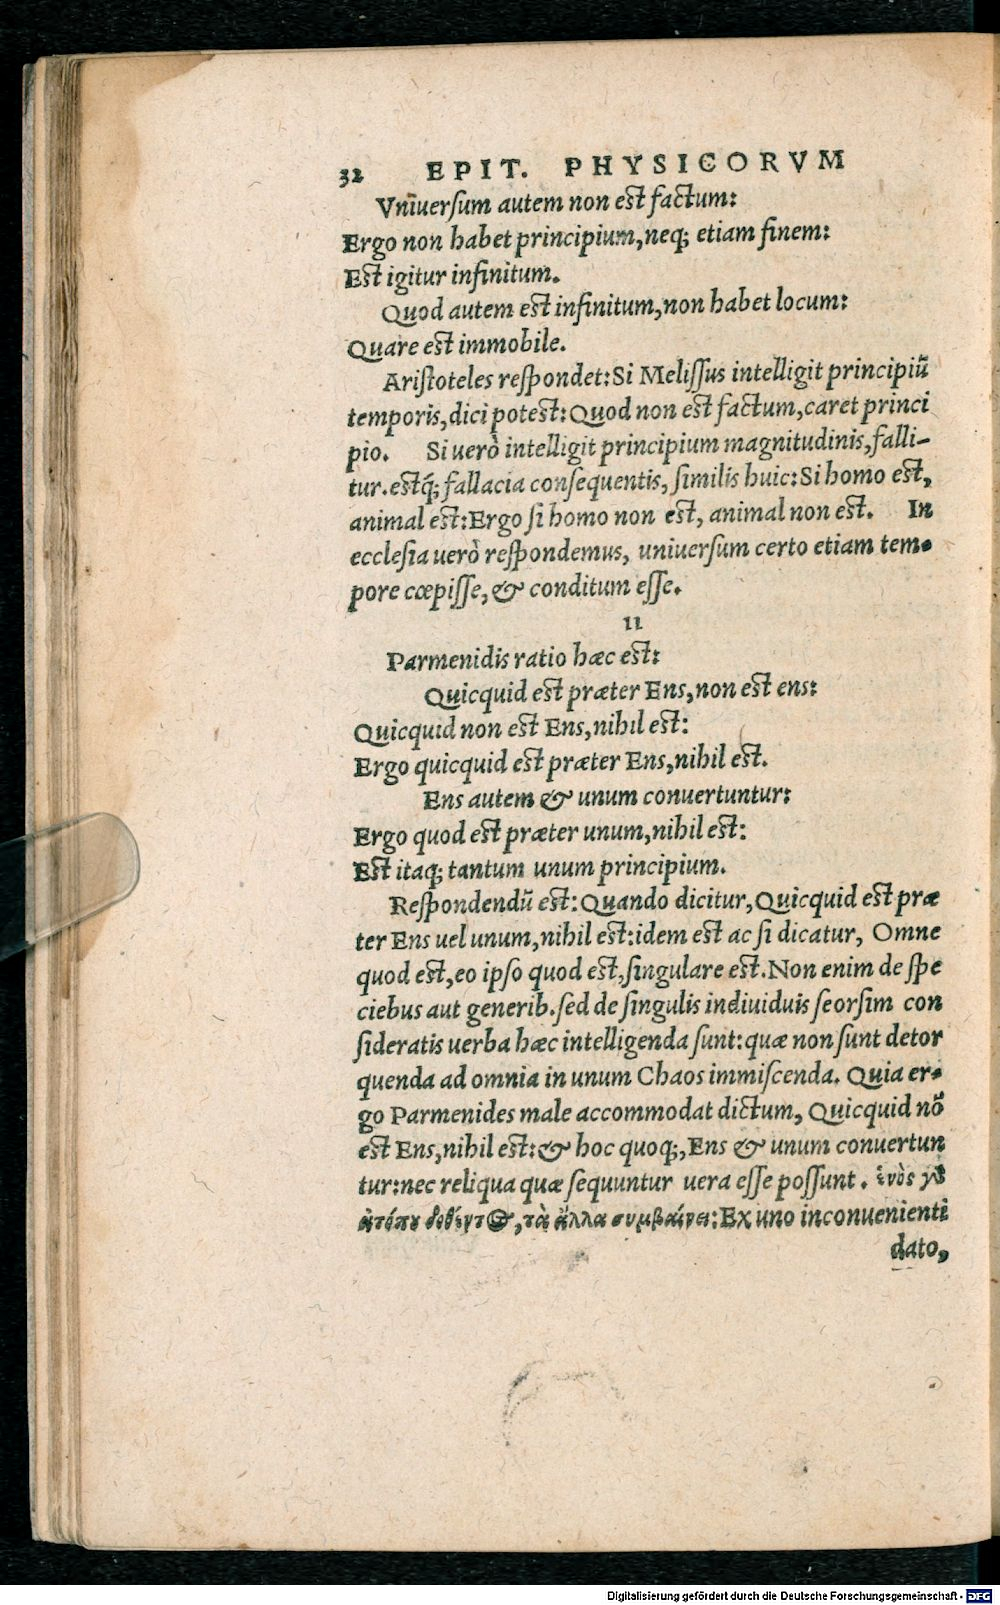 32 EPIT. PHYSICORVM
Vniuersum autem non est factum:
Ergo non habet principium, neq; etiam finem:
Est igitur infinitum.
Quod autem est infinitum, non habet locum:
Quare est immobile.
Aristoteles respondet: Si Melissus intelligit principiũ
temporis, dici potest: Quod non est factum, caret princi
pio. Si uerò intelligit principium magnitudinis, falli-
tur. estq́; fallacia consequentis, similis huic: Si homo est,
animal est: Ergo si homo non est, animal non est. In
ecclesia uerò respondemus, uniuersum certo etiam tem-
pore cœpisse, & conditum esse.
11
Parmenidis ratio hæc est:
Quicquid est præter Ens, non est ens:
Quicquid non est Ens, nihil est:
Ergo quicquid est præter Ens, nihil est.
Ens autem & unum conuertuntur:
Ergo quod est præter unum, nihil est:
Est itaq; tantum unum principium.
Respondendũ est: Quando dicitur, Quicquid est præ
ter Ens uel unum, nihil est: idem est ac si dicatur, Omne
quod est, eo ipso quod est, singulare est. Non enim de spe
ciebus aut generib. sed de singulis indiuiduis seorsim con
sideratis uerba hæc intelligenda sunt: quæ non sunt detor
quenda ad omnia in unum Chaos immiscenda. Quia er-
go Parmenides male accommodat dictum, Quicquid nõ
est Ens, nihil est: & hoc quoq;, Ens & unum conuertun
tur: nec reliqua quæ sequuntur uera esse possunt. ἑνὸς γὰρ
ἀτόπου δοθέντος, τὰ ἄλλα συμβαίνει: Ex uno inconuenienti
dato,
Digitalisierung gefördert durch die Deutsche Forschungsgemeinschaft - DFG